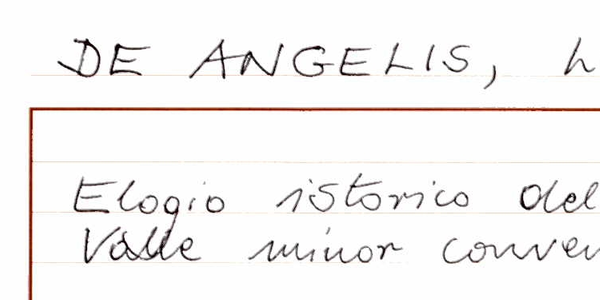 DE ANGELIS, L
Elogio istorico del
Valle minor conven